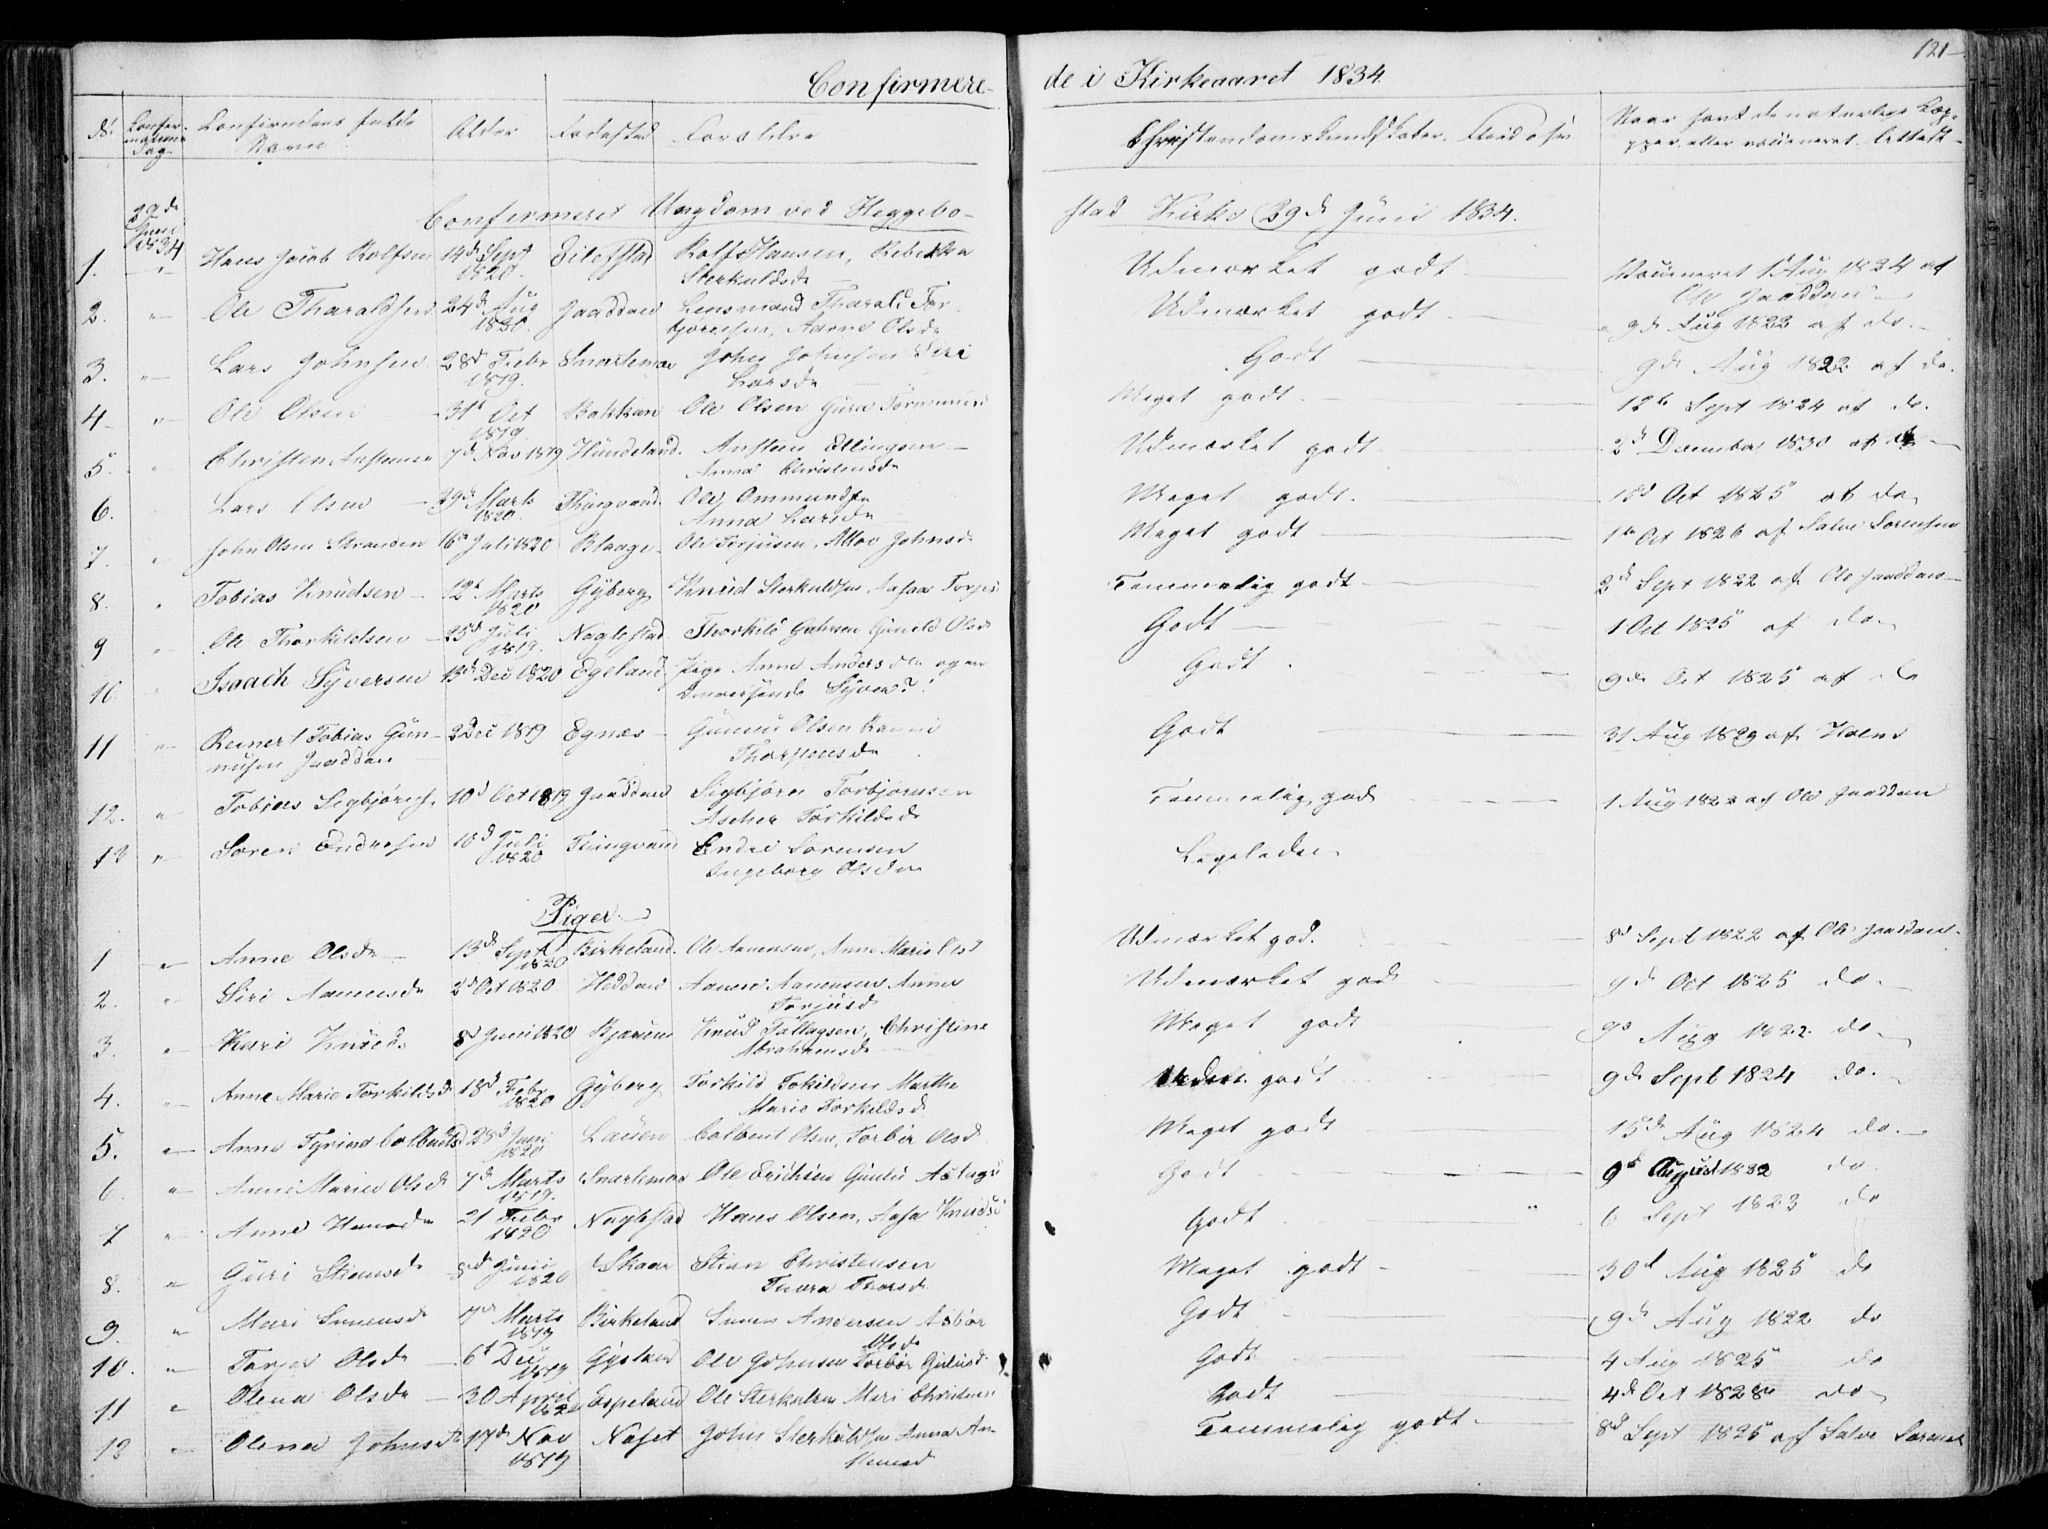 121
Confirmerede i Kirkeaaret 1834.
No Confirmations Dag Confirmendens fulde Navn Alder Fødested Forældre Christendomskundskaber. Flid o s v Naar havt de naturlige Kopper eller vaccineret. Attest
29de Juni 1834
Confirmeret Ungdom ved Heggebostad Kirke 29de Juni 1834.
1. " Hans Jacob Rolfsen 14d Sept 1820. Eilefstad Rolf Hansen, Rebekka Sterkuldsd Udmærket godt Vaccineret 1 Aug 1824 af Ole Jaaddan
2. " Ole Tharaldsen 24d Aug 1820. Jaaddan Lensmand Tharald Torgersen, Aasne Olsd Udmærket godt 9de Aug 1822 af do.
3. " Lars Johnsen 28d Febr 1819. Snartemo John Johnsen Siri Larsd Godt 9de Aug 1822 af do.
4 " Ole Olsen 31t Oct 1819 Bakkan Ole Olsen Gura Meget godt. 12te Sept 1824 af do.
5. " Christen 7d Nov 1819 Hundeland. Ansteen Ellingsen Anna Christensd Udmærket godt 2d December 1830 af
6. " Lars Olsen 29d Marts 1820. Thingvand Ole Ommunds Anna Larsd Meget godt. 15d Oct 1825 af do
7. " John Olsen Stranden 16d Juli 1820 Ole Torjusen, Johnsd Meget godt 1te Oct 1826 af Salve Sørensen
8. " Tobias Knudsen 12t Marts 1820 Gyberg Knud Sterkuldsen Aasaa Torjs Temmelig godt 2d Sept 1822 af Ole Jaaddan
9 " Ole Thorkildsen 25d Juli 1819. Naglestad Thorkild Gunild Olsd Godt 1 Oct 1825 af do
10 " Isaach Syversen 13d Dec 1820 Egeland. Pige Anne Andersd og en Syver? Godt. 9de Oct 1825 af do
11 " Reinert Tobias Gunnusen Jaaddan 2 Dec 1819 Egnæs Gunnu Olsen Ranni Godt 31 Aug 1829 af Holm
12. " Tobias Segbjørns. 10d Oct 1819 Jaaddan Sigbjørn Torbjørnsen Ascher Torkildsd Temmelig godt 1 Aug 1822 af Ole Jaaddan
13 " Søren Endresen 10d Juli 1820 Tingvand Endre Sørensen Ingeborg Olsd Ligeledes
Piger
1 " Anne Olsd 13d Sept 1820 Birkeland. Ole Aanensen, Anne Marie Olsd Udmærket god. 8d Sept 1822 af Ole Jaaddan.
2. " Siri Aanensd 2d Oct 1820 Heddan Aanen Aanensen Anne Torjusd Udmærket godt 9de Oct 1825 do.
3. " Kari Knudsd. 8d Juni 1820 Bjærum Knud Tallagsen, Christine Abrahamsd Meget godt 9d Aug 1822 do
4. " Anne Marie Torkildsd 18d Febr 1820 Gyberg Torkild Tokildsen Marthe Marie Torkildsd godt 9de Sept 1824 do.
5. " Anne Tyrine Colbentsd 28d Juni 1820 Lauen Colbent Olsen, Torbør Olsd Meget godt 15d Aug 1824 do.
6 " Anne Marie Olsd 7d Marts 1819. Snartemo Ole Erichsen Gunild Aslags Godt 9d August 1832 do
7 " Anne Hansd 21 Febr 1820 Naglestad Hans Olsen, Aasa Knudsd Godt 6 Sept 1823 do
8. " Guri Stiansd 8d Juni 1820 Skaar Stian Christensen Thorsd Meget godt 30d Aug 1825 do
9. " Mari Simensd 7d Marts 1819 Birkeland Simen Andersen Asbør Olsd Godt 9de Aug 1822 do
10. " Torjer Olsd 6t Dec 1819 Gysland Ole Johnsen Torbør Godt 4 Aug 1825 do
11 " Olena Olsd 30 April 1820 Espeland Ole Sterkulsen Mari Christens Godt 4de Oct 1828 do
12 " Olena Johnsd 17d Nov 1819 Neset John Sterkuldsen Anna Temmelig godt 8d Sept 1825 af Salve Sørensen